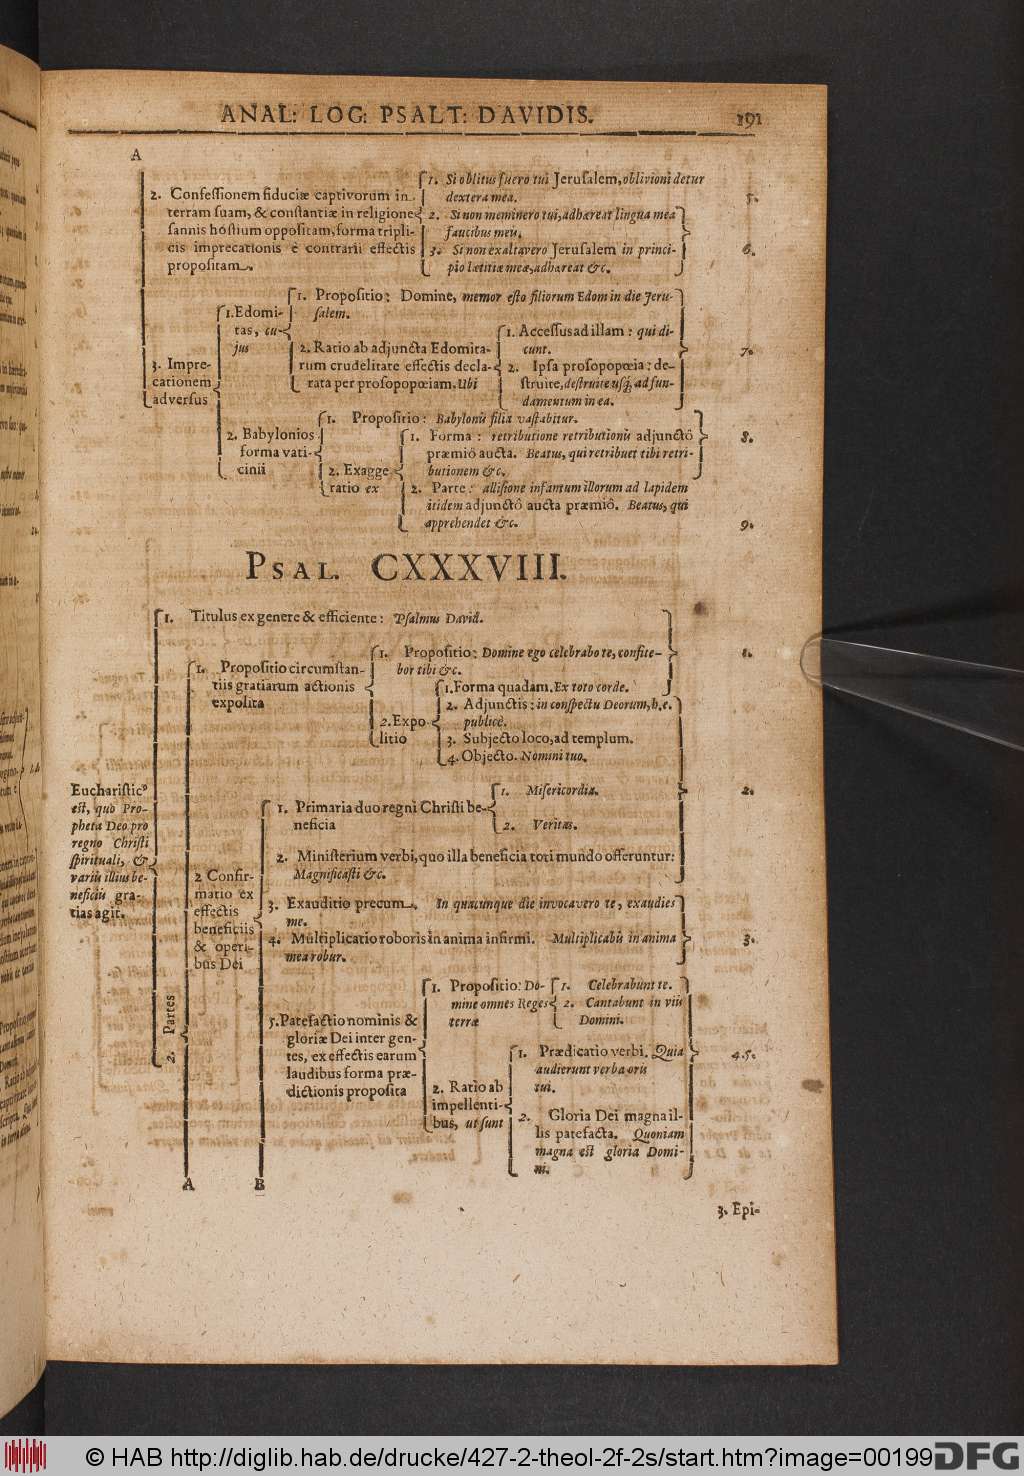 ANAL: LOG: PSALT: DAVIDIS.
191
A
2. Confessionem fiduciæ captivorum in
terram suam, & constantiæ in religione
sannis hostium oppositam, forma tripli-
cis imprecationis è contrarii effectis
propositam.
1. Si oblitus fuero tui Jerusalem, oblivioni detur
dextera mea.
5.
2. Si non meminero tui, adhæreat lingua mea
faucibus meis.
3. Si non exaltavero Jerusalem in princi-
pio lætitiæ meæ, adhæreat &c.
6.
3. Impre-
cationem
adversus
1. Edomi-
tas, cu-
jus
1. Propositio: Domine, memor esto filiorum Edom in die Jeru-
salem.
2. Ratio ab adjuncta Edomita-
rum crudelitate effectis decla-
rata per prosopopœiam. Ubi
1. Accessus ad illam: qui di-
cunt.
2. Ipsa prosopopœia: de-
struite, destruite usq;, ad fun-
damentum in ea.
7.
2. Babylonios
forma vati-
cinii
1. Propositio: Babylonis filia vastabitur.
2. Exagge
ratio ex
1. Forma: retributione retributionis adjunctô
præmiô aucta. Beatus, qui retribuet tibi retri-
butionem &c.
8.
2. Parte: allisione infantum illorum ad lapidem
itidem adjunctô aucta præmiô. Beatus, qui
apprehendet &c.
9.
PSAL. CXXXVIII.
Eucharistic⁹
est, quo Pro-
pheta Deo pro
regno Christi
spirituali, &
variis illius be-
neficiis gra-
tias agit.
1. Titulus ex genere & efficiente: Psalmus David.
2. Partes
1. Propositio circumstan-
tiis gratiarum actionis
exposita
1. Propositio: Domine ego celebrabo te, confite-
bor tibi &c.
1.
2. Expo
litio
1. Forma quadam. Ex toto corde.
2. Adjunctis: in conspectu Deorum, h.e.
publicè.
3. Subjecto loco, ad templum.
4. Objecto. Nomini tuo.
2 Confir-
matio ex
effectis
beneficiis
& operi-
bus Dei
1. Primaria duo regni Christi be-
neficia
1. Misericordia.
2. Veritas.
2.
2. Ministerium verbi, quo illa beneficia toti mundo offeruntur:
Magnificasti &c.
3. Exauditio precum. In quacunque die invocavero te, exaudies
me.
4. Multiplicatio roboris in anima infirmi. Multiplicabis in anima
mea robur.
3.
5. Patefactio nominis &
gloriæ Dei inter gen-
tes, ex effectis earum
laudibus forma præ-
dictionis proposita
1. Propositio: Do-
mine omnes Reges
terræ
1. Celebrabunt te.
2. Cantabunt in viis
Domini.
2. Ratio ab
impellenti-
bus, ut sunt
1. Prædicatio verbi. Quia
audierunt verba oris
tui.
4. 5.
2. Gloria Dei magna il-
lis patefacta. Quoniam
magna est gloria Domi-
ni.
A
B
3. Epi-
© HAB http://diglib.hab.de/drucke/427-2-theol-2f-2s/start.htm?image=00199
DFG